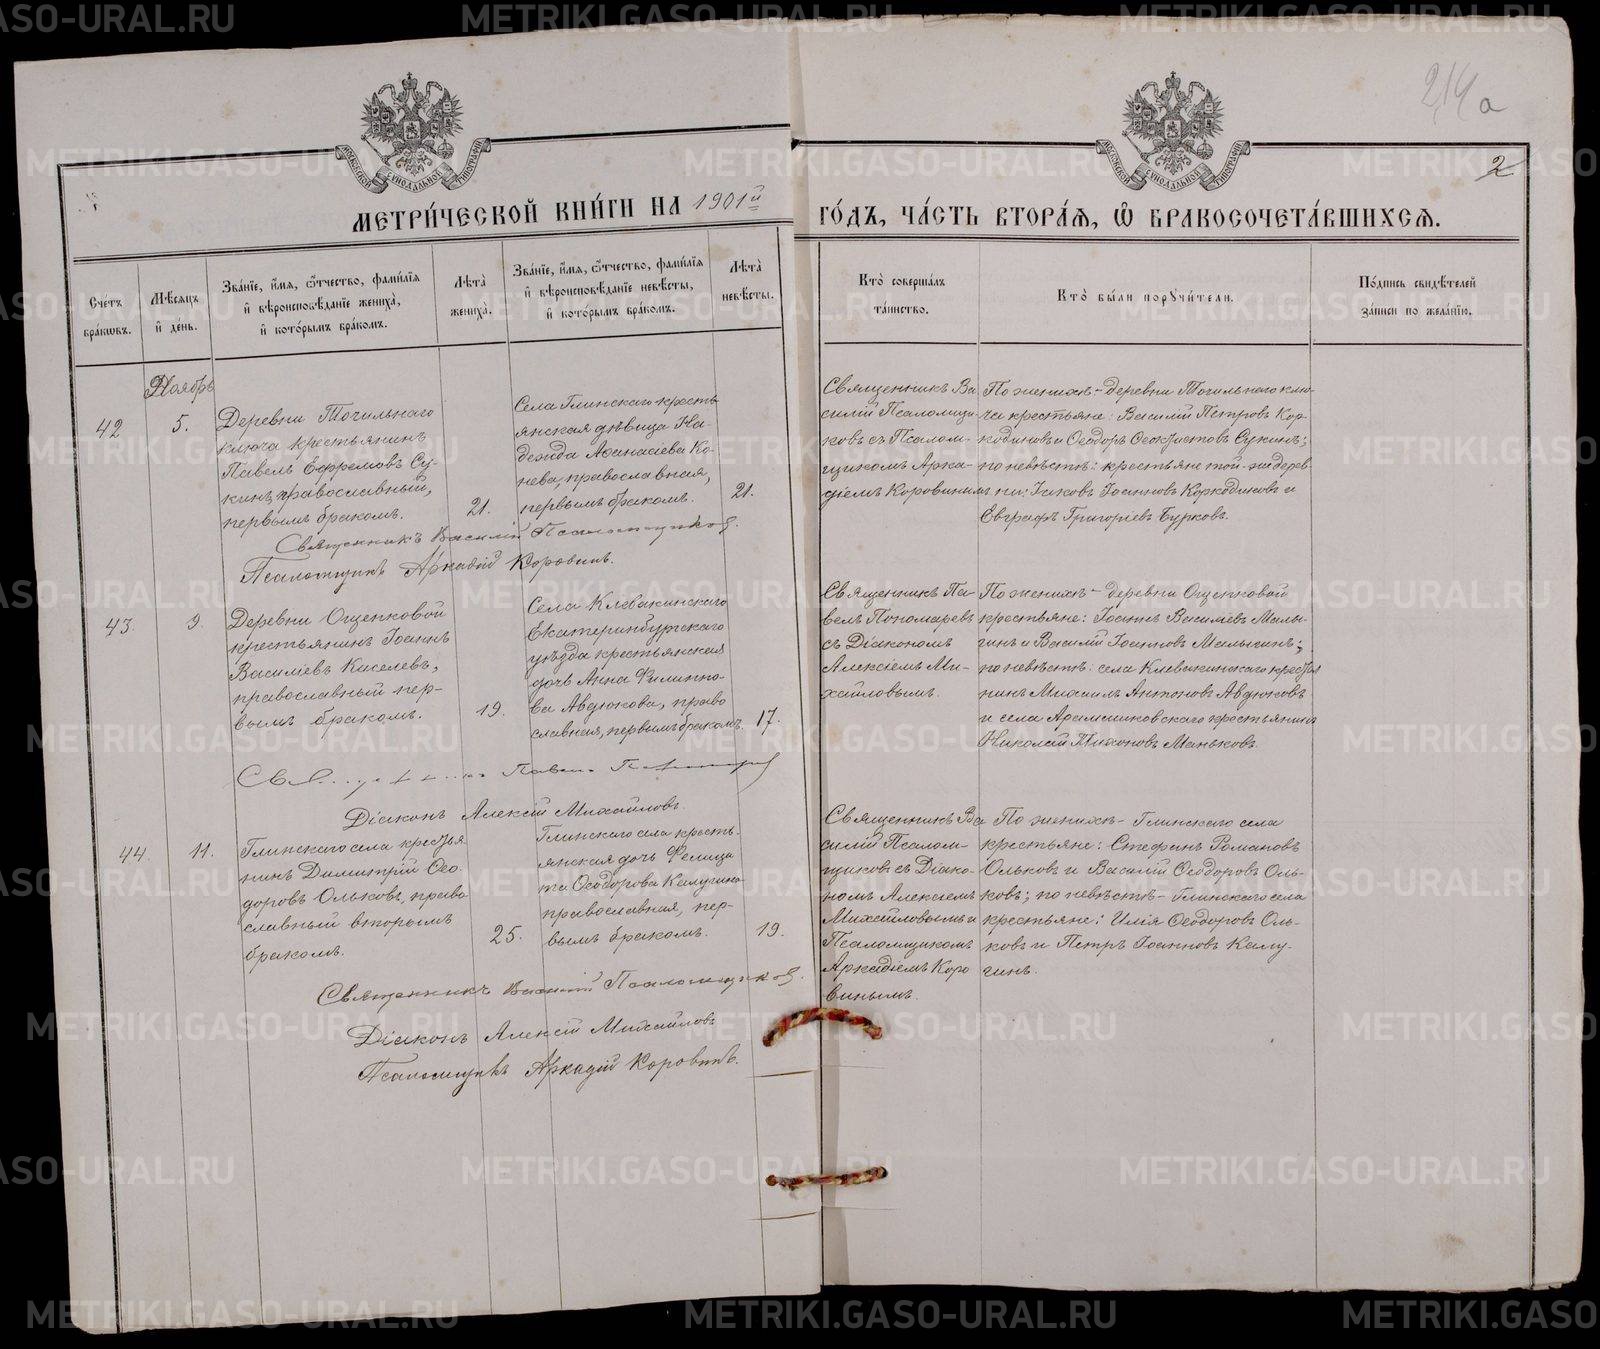 214 а
2
МОСКОВСКОЙ СѴНОДАЛЬНОЙ ТИПОГРАФІИ
МОСКОВСКОЙ СѴНОДАЛЬНОЙ ТИПОГРАФІИ
МЕТРИ́ЧЕСКОЙ КНИ́ГИ НА 1901й ГО́ДЪ, ЧА́СТЬ ВТОРА́Я, Ѽ БРАКОСОЧЕТА́ВШИХСЯ.
Сче́тъ
бра́ковъ.
Мѣ́сяцъ
и҆ де́нь.
Зва́нїе, и҆́мя, ѻ҆́тчество, фами́лїя
и҆ вѣроисповѣ́данїе жениха̀,
и҆ кото́рымъ бра́комъ.
Лѣ́та
жениха̀.
Зва́нїе, и҆́мя, ѻ҆́тчество, фами́лїя
и҆ вѣроисповѣ́данїе невѣ́сты,
и҆ кото́рымъ бра́комъ.
Лѣ́та
невѣ́сты.
Кто̀ соверша́лъ
та́инство.
Кто̀ бы́ли порꙋчи́тели.
По́дпись свидѣ́телей
за́писи по жела́нїю.
Ноябрь
42
5.
Деревни Точильнаго
ключа крестьянинъ
Павелъ Ефремовъ Су-
кинъ, православный,
первымъ бракомъ.
21.
Села Глинскаго кресть
янская дѣвица На-
дежда Аѳанасіева Ко-
нева, православная,
первымъ бракомъ.
21.
Священникъ Ва
силій Псаломщи-
ковъ съ Псалом-
щикомъ Арка-
діемъ Коровинымъ
По женихѣ - деревни Точильнаго клю-
ча крестьяне: Василій Петровъ Кор-
кодиновъ и Ѳеодоръ Ѳеоктистовъ Сукинъ;
по невѣстѣ: крестьяне той-же дерев-
ни: Іаковъ Іоанновъ Коркодиновъ и
Евграфъ Григоріевъ Бурковъ.
Священникъ Василій Псаломщиковъ.
Псаломщикъ Аркадій Коровинъ.
43.
9.
Деревни Ощепковой
крестьянинъ Іоаннъ
Василіевъ Киселевъ,
православный пер-
вымъ бракомъ.
19.
Села Клевакинскаго
Екатеринбургскаго
уѣзда крестьянская
дочь Анна Филиппо-
ва Авдюкова, право
славная, первымъ бракомъ.
17.
Священникъ Па-
велъ Пономаревъ
съ Діакономъ
Алексіемъ Ми-
хайловымъ.
По женихѣ - деревни Ощепковой
крестьяне: Іоаннъ Василіевъ Малы-
гинъ и Василій Іоанновъ Малыгинъ;
по невѣстѣ: села Клевакинскаго крестья
нинъ Михаилъ Антоновъ Авдюковъ
и села Арамашковскаго крестьянинъ
Николай Тихоновъ Маньковъ.
Священникъ Павелъ Пономаревъ
Діаконъ Алексій Михайловъ.
44.
11.
Глинскаго села крестья
нинъ Димитрій Ѳео-
доровъ Ольковъ, право
славный вторымъ
бракомъ.
25.
Глинскаго села кресть-
янская дочь Фелица
та Ѳеодорова Калугина
православная, пер-
вымъ бракомъ.
19.
Священникъ Ва
силій Псалом-
щиковъ съ Діако-
номъ Алексіемъ
Михайловымъ и
Псаломщикомъ
Аркадіемъ Коро
винымъ.
По женихѣ - Глинскаго села
крестьяне: Стефанъ Романовъ
Ольковъ и Василій Ѳеодоровъ Оль-
ковъ; по невѣстѣ - Глинскаго села
крестьяне: Илія Ѳеодоровъ Оль-
ковъ и Петръ Іоанновъ Калу-
гинъ.
Священникъ Василій Псаломщиковъ.
Діаконъ Алексій Михайловъ
Псаломщикъ Аркадій Коровинъ.
METRIKI.GASO-URAL.RU